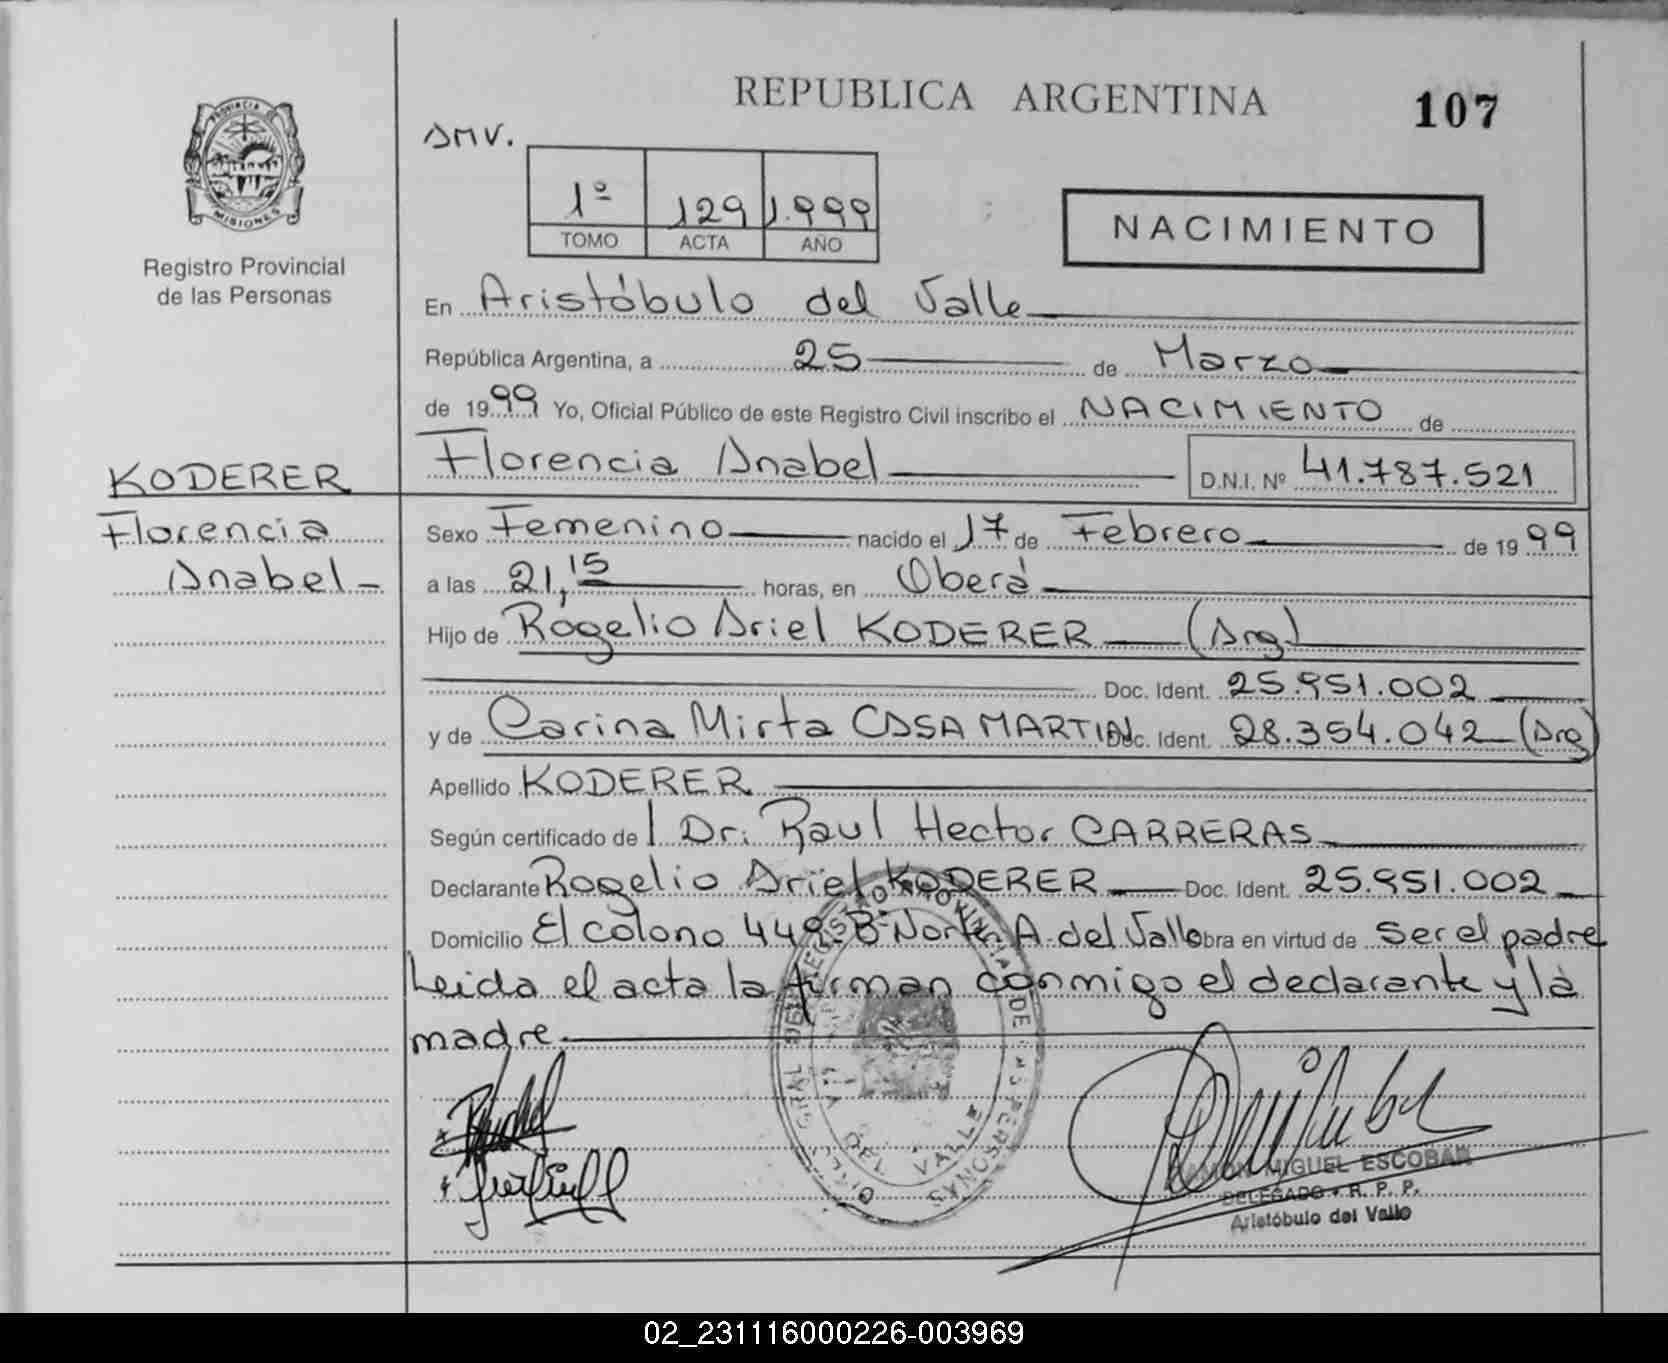 REPUBLICA ARGENTINA
107
AMV.
1º 129 1.999
TOMO ACTA AÑO
NACIMIENTO
PROVINCIA DE
MISIONES
Registro Provincial
de las Personas
En Aristóbulo del Valle
República Argentina, a 25 de Marzo
de 1999 Yo, Oficial Público de este Registro Civil inscribo el NACIMIENTO de
Florencia Anabel D.N.I. Nº 41.787.521
KODERER
Florencia
Anabel-
Sexo Femenino nacido el 17 de Febrero de 1999
a las 21,15 horas, en Oberá
Hijo de Rogelio Ariel KODERER (Arg)
Doc. Ident. 25.951.002
y de Carina Mirta CASAMARTIN Doc. Ident. 28.354.042 (Arg)
Apellido KODERER
Según certificado de l Dr. Raul Hector CARRERAS
Declarante Rogelio Ariel KODERER Doc. Ident. 25.951.002
Domicilio El colono 449. Bº Norte. A. del Valle Obra en virtud de Ser el padre
Leida el acta la firman conmigo el declarante y la
madre
DEL VALLE
RAMON MIGUEL ESCOBAR
DELEGADO - R. P. P.
Aristóbulo del Valle
02_231116000226-003969